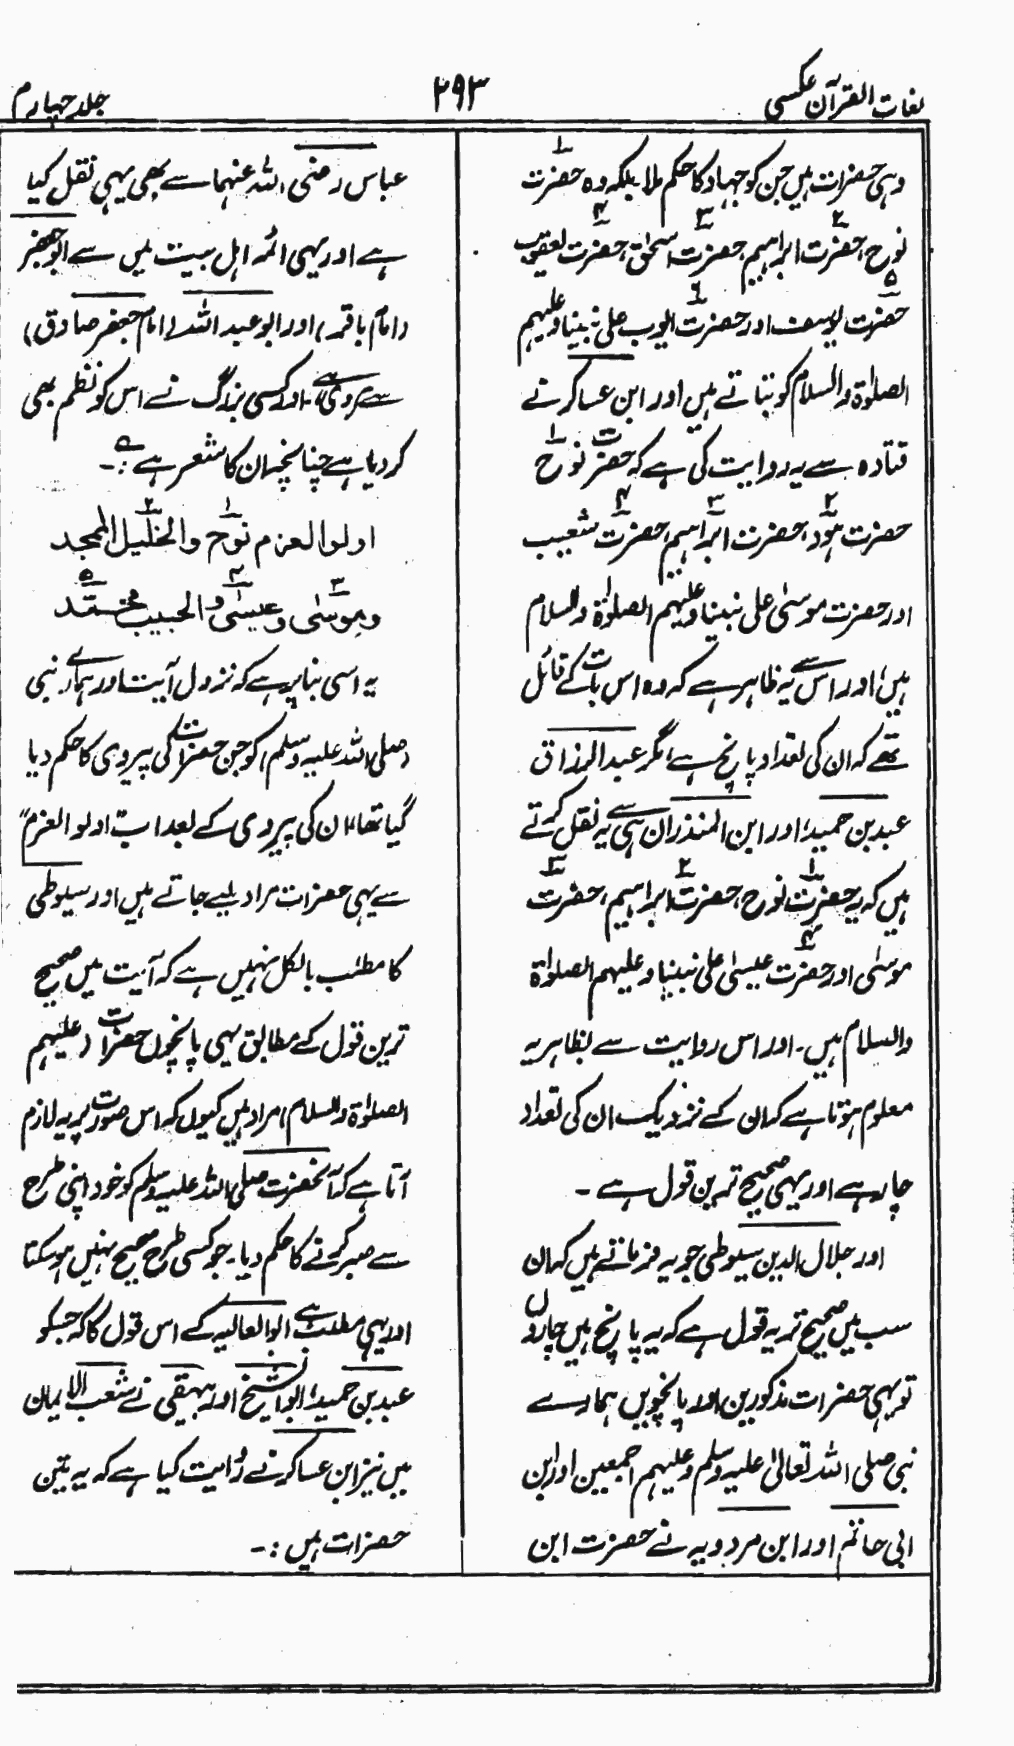 لغات القرآن عکسی
۲۹۳
جلد چہارم
وہی حضرات ہیں جن کو جہاد کا حکم ملا بلکہ وہ حضرت ۱
نوح، حضرت ۲ ابراہیم، حضرت ۳ اسحٰق، حضرت ۴ یعقوب
حضرت ۵ یوسف اور حضرت ۶ ایوب علیٰ نبینا و علیہم
الصلوٰۃ والسلام کو بتاتے ہیں اور ابن عساکر نے
قتادہ سے یہ روایت کی ہے کہ حضرت ۱ نوح
حضرت ۲ ہود، حضرت ۳ ابراہیم، حضرت ۴ شعیب
اور حضرت موسیٰ علی نبینا و علیہم الصلوٰۃ والسلام
ہیں، اور اس سے یہ ظاہر ہے کہ وہ اس بات کے قائل
تھے کہ ان کی تعداد پانچ ہے، مگر عبد الرزاق
عبد بن حمید اور ابن المنذر ان ہی سے یہ نقل کرتے
ہیں کہ یہ حضرت ۱ نوح، حضرت ۲ ابراہیم، حضرت ۳
موسیٰ اور حضرت ۴ عیسیٰ علی نبینا و علیہم الصلوٰۃ
والسلام ہیں۔ اور اس روایت سے بظاہر یہ
معلوم ہوتا ہے کہ ان کے نزدیک ان کی تعداد
چار ہے اور یہی صحیح ترین قول ہے ۔
اور جلال الدین سیوطی جو یہ فرماتے ہیں کہ ان
سب میں صحیح تر یہ قول ہے کہ یہ پانچ ہیں چاروں
تو یہی حضرات مذکورین اور پانچویں ہمارے
نبی صلی اللہ تعالیٰ علیہ وسلم و علیہم اجمعین اور ابن
ابی حاتم اور ابن مردویہ نے حضرت ابن
عباس رضی اللہ عنہما سے بھی یہی نقل کیا
ہے اور یہی ائمہ اہل بیت میں سے ابو جعفر
(امام باقر) اور ابو عبد اللہ (امام جعفر صادق)
سے مروی ہے۔ اور کسی بزرگ نے اس کو نظم بھی
کر دیا ہے چنانچہ ان کا شعر ہے :۔
اولوا العزم نوح ۱ والخلیل ۲ الممجد
وموسیٰ ۳ وعیسیٰ ۴ والحبیب محمد ۵
یہ اسی بنا پر ہے کہ نزول آیت اور ہمارے نبی
(صلی اللہ علیہ وسلم) کو جن حضرات کی پیروی کا حکم دیا
گیا تھا، ان کی پیروی کے بعد اب اولو العزم"
سے یہی حضرات مراد لیے جاتے ہیں اور سیوطی
کا مطلب بالکل نہیں ہے کہ آیت میں صحیح
ترین قول کے مطابق یہی پانچوں حضرات (علیہم
الصلوٰۃ والسلام) مراد ہیں کیوں کہ اس صورت پر یہ لازم
آتا ہے کہ آنحضرت صلی اللہ علیہ وسلم کو خود اپنی طرح
سے صبر کرنے کا حکم دیا۔ جو کسی طرح صحیح نہیں ہو سکتا
اور یہی مطلب ہے ابو العالیہ کے اس قول کا کہ جسکو
عبد بن حمید، ابو الشیخ اور بیہقی نے شعب الایمان
میں نیز ابن عساکر نے روایت کیا ہے کہ یہ تین
حضرات ہیں :۔